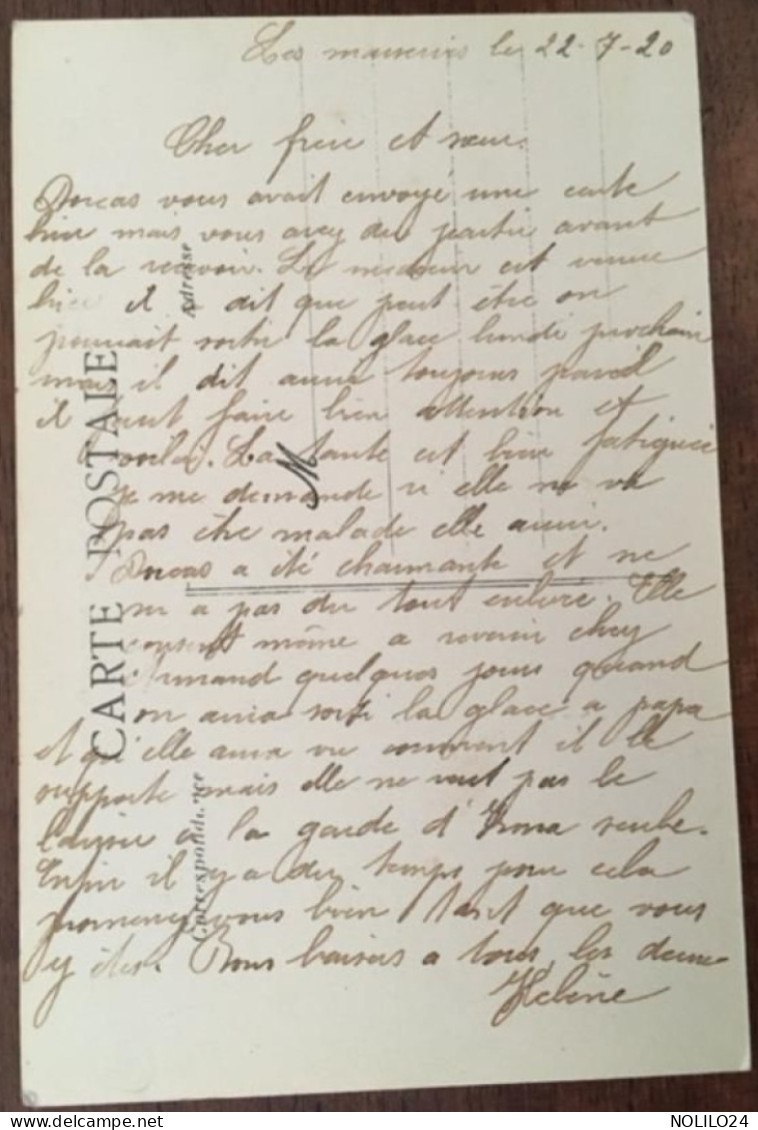 Les le 22-7-20
Cher frère et sœur.
Dorcas vous avait envoyé une carte
hier mais vous avez du partir avant
de la recevoir. Le medecin est venue
hier il dit que peut être on
pourrait sortir la glace lundi prochain
mais il dit aussi toujours pareil
il faut faire bien attention et
voila. La tante est bien fatiguée
je me demande si elle ne va
pas être malade elle aussi.
Dorcas a été charmante et ne
m a pas du tout enlevé. Elle
consent même a revenir chez
Armand quelques jours quand
on aura sorti la glace a papa
et qu'elle aura vu comment il le
supporte mais elle ne veut pas le
laisser a la garde d' seule.
Enfin il y a du temps pour cela
promenez vous bien tant que vous
y êtes. Bons baisers a tous les deux
Hélène
CARTE POSTALE
Correspondance
Adresse
M
NOLILO24